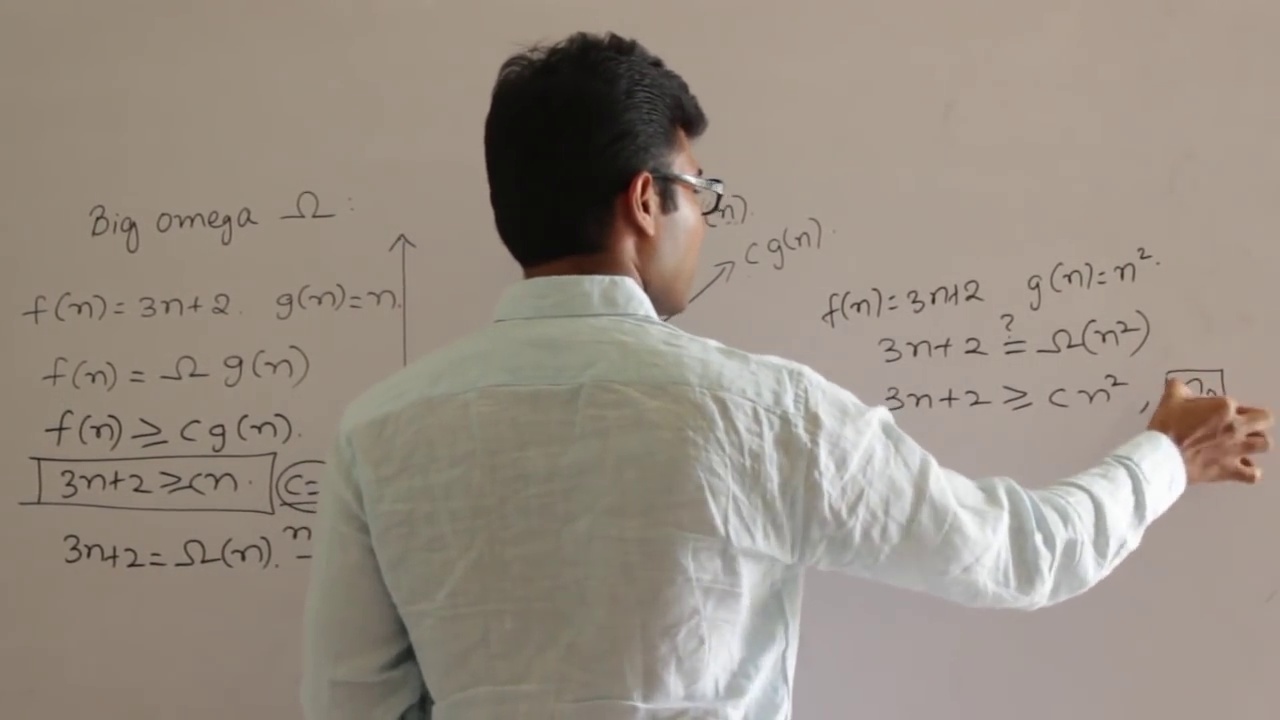 Big omega Ω :
f(n) = 3n+2. g(n)=n.
f(n) = Ω g(n)
f(n) ≥ c g(n).
3n+2 ≥ cn. c=
3n+2 = Ω(n). n
(n).
c g(n).
f(n) = 3n+2 g(n) = n².
3n+2 ≟ Ω(n²)
3n+2 ≥ c n² ,